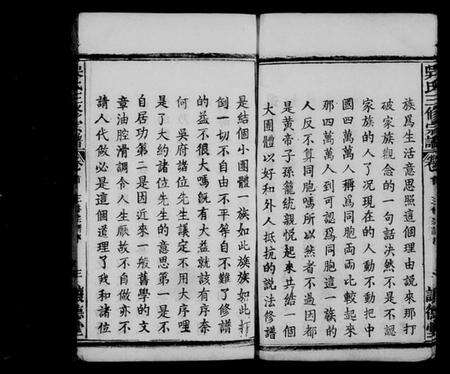 族爲生活意思照這個理由說來那打
破家族觀念的一句話決然不是不認
家族的人了况現在的人動不動把中
國四萬萬人稱爲同胞兩兩比較起來
那四萬萬人到可認爲同胞這一族的
人反不算同胞嗎所以然者不過因都
是黃帝子孫籠統親悦起來共結一個
大團體以好和外人抵抗的說法修譜
是結個小團體一族如此族族如此打
倒一切不自由不平等自不難了修譜
的益不很大嗎既有大益就該有序奈
何吳府諸位先生議定不用大序哩
是了大約諸位先生的意思第一是不
自居功第二是因近來一般舊學的文
章油腔滑調令人生厭故不自做亦不
請人代做必是這個道理了我和諸位
吳氏三修宗譜
讓德堂